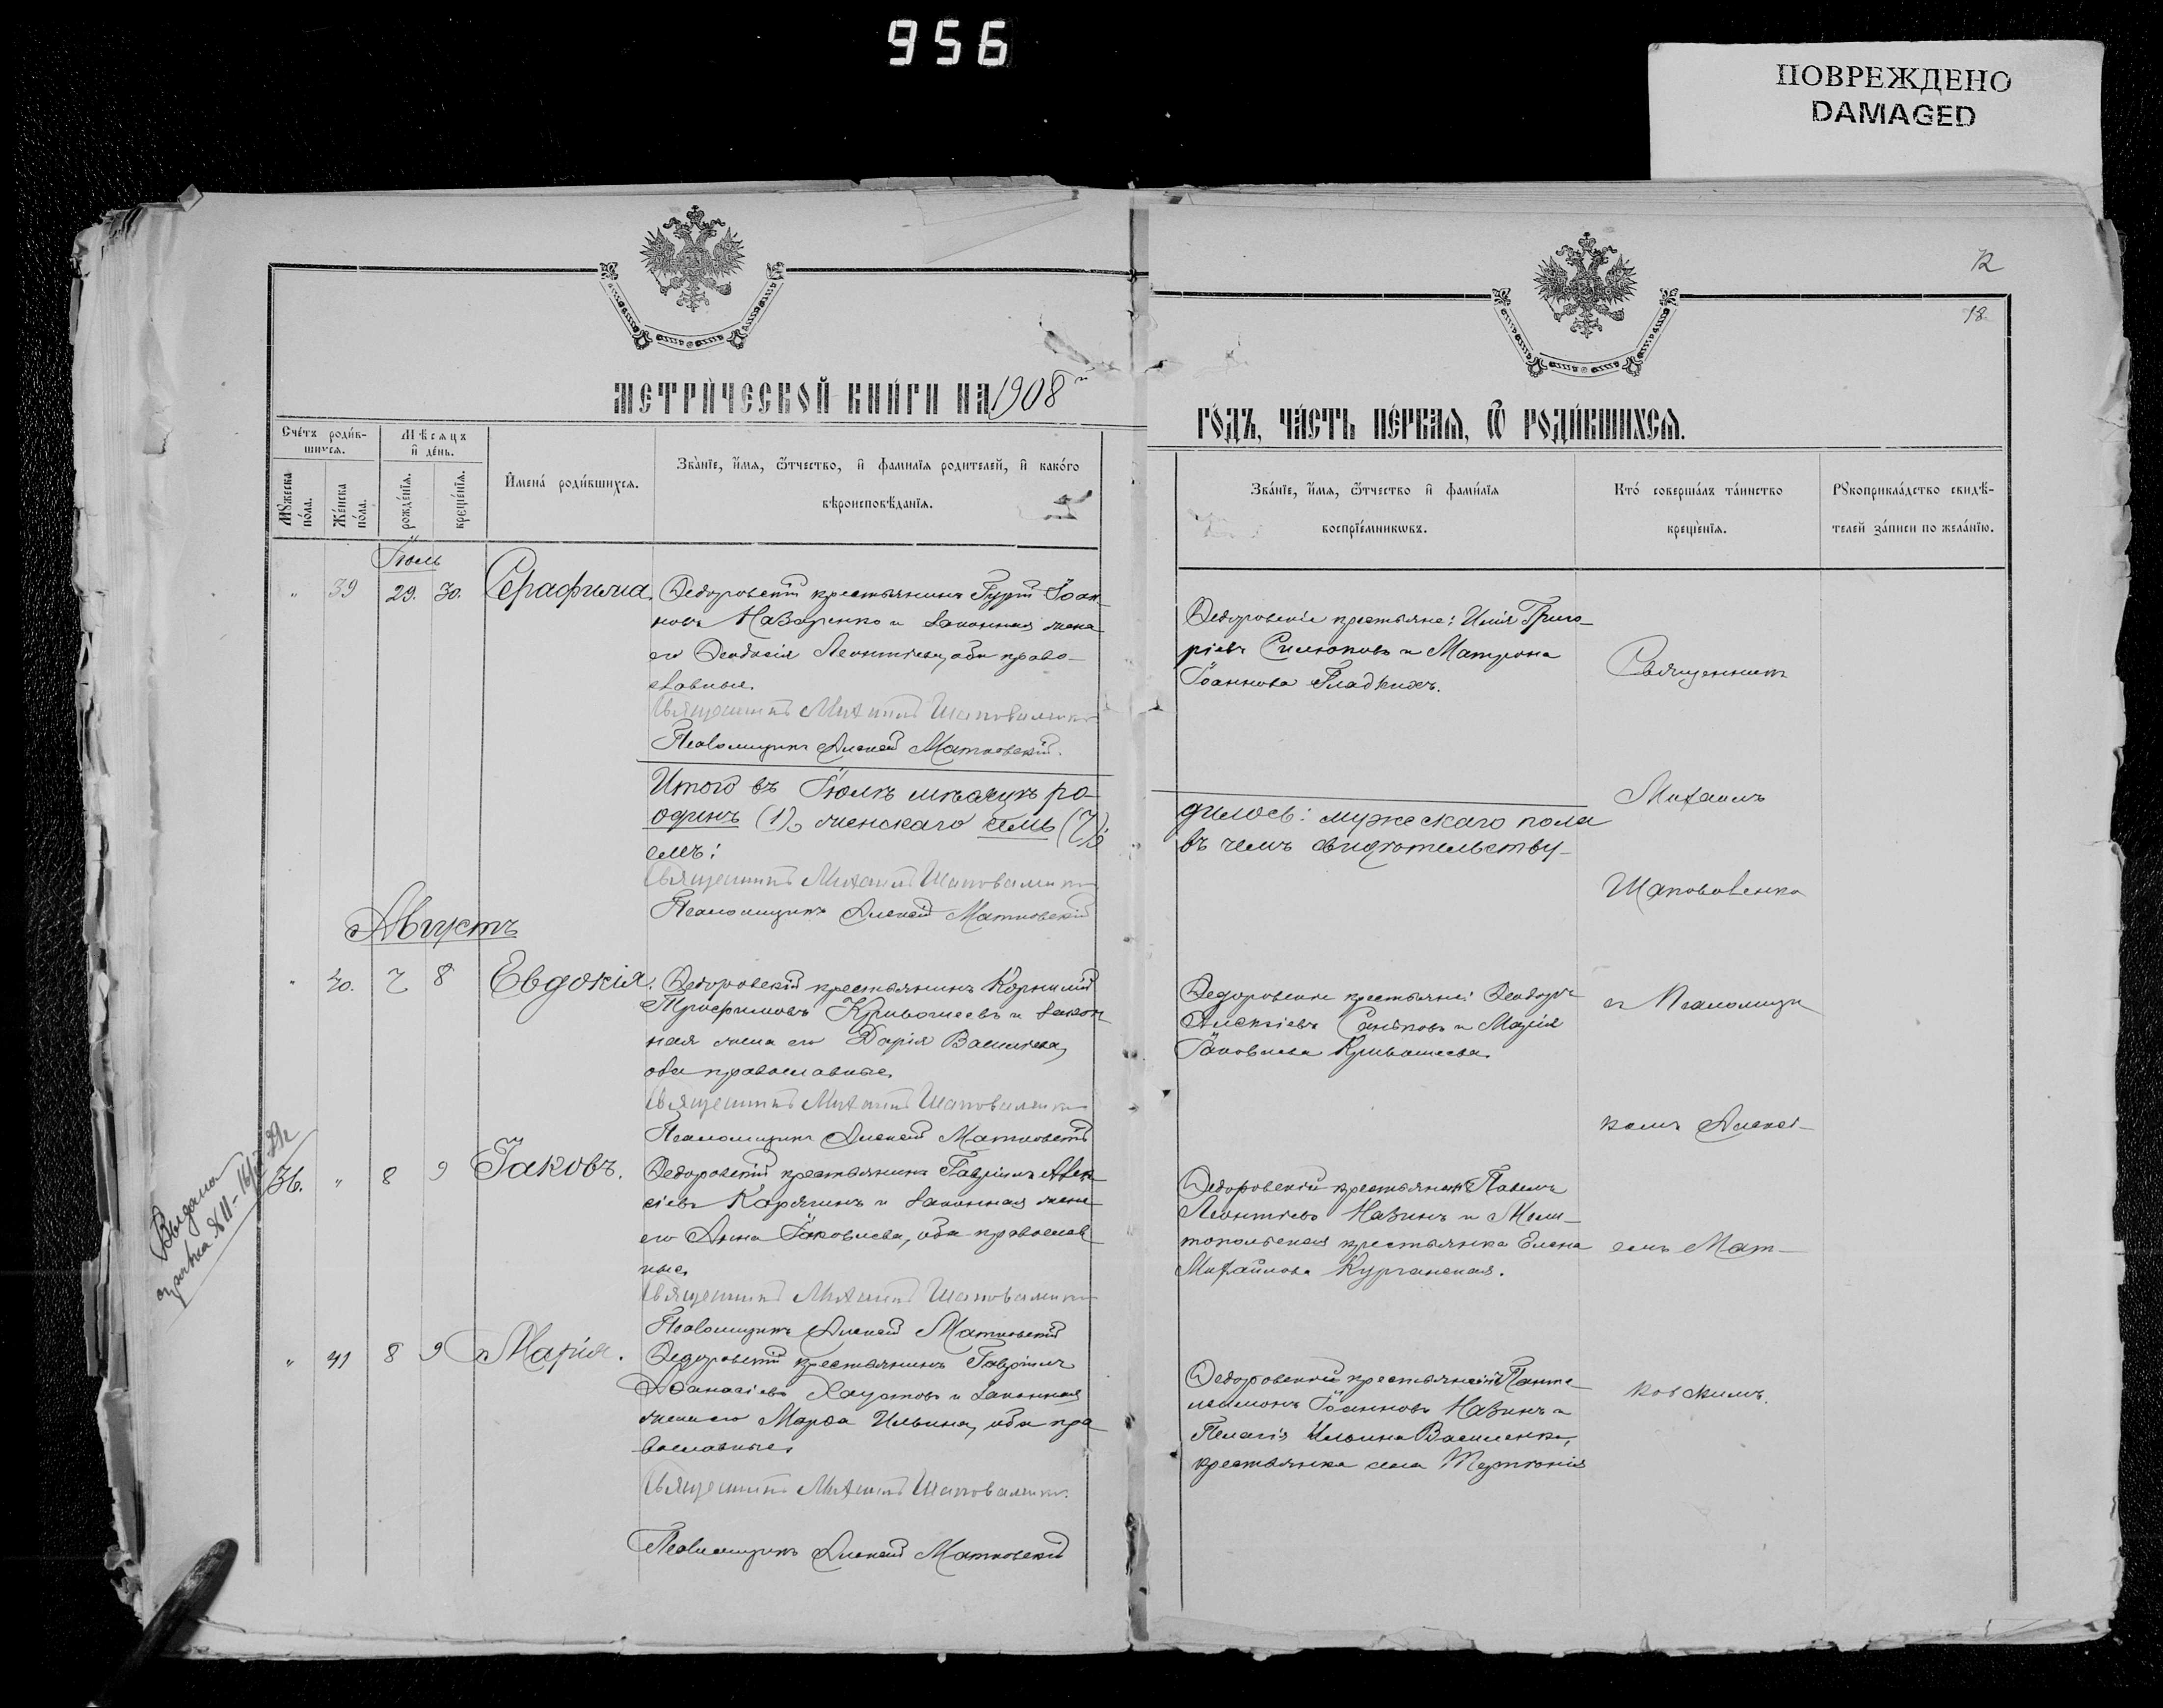 956
ПОВРЕЖДЕНО
DAMAGED
72
18
МЕТРИЧЕСКОЙ КНИГИ НА 1908й
ГОДЪ, ЧАСТЬ ПЕРВАЯ, Ѿ РОДИВШИХСЯ.
Счетъ родив-
шихся.
Мѣсяцъ
и день.
Мужеска
пола.
Женска
пола.
рожденїя.
крещенїя.
Имена родившихся.
Званїе, имя, ѿтчество, и фамилїя родителей, и какого
вѣроисповѣданїя.
Званїе, имя, ѿтчество и фамилїя
воспрїемникѡвъ.
Кто совершалъ таинство
крещенїя.
Рукоприкладство свидѣ-
телей записи по желанїю.
Іюль
" 39 29. 30. Серафима.
Ѳедоровскій крестьянинъ Гурій Іоан-
новъ Назаренко и законная жена
его Ѳеодосія Леонтіева, оба право-
славные.
Священникъ Михаилъ Шаповаленко
Псаломщикъ Алексѣй Матковскій.
Ѳедоровскіе крестьяне: Илія Григо-
ріевъ Силюковъ и Матрона
Іоаннова Гладкихъ.
Итого въ Іюлѣ мѣсяцѣ ро-
дилось: мужескаго пола
одинъ (1), женскаго семь (7);
въ чемъ свидѣтельству-
емъ:
Священникъ Михаилъ Шаповаленко
Псаломщикъ Алексѣй Матковскій
Августъ
" 40. 7 8 Евдокія.
Ѳедоровскій крестьянинъ Корнилій
Трофимовъ Кривошеевъ и закон
ная жена его Дарія Васильева,
оба православные.
Священникъ Михаилъ Шаповаленко
Псаломщикъ Алексѣй Матковскій
Ѳедоровскіе крестьяне: Ѳеодоръ
Алексіевъ Саньковъ и Марія
Іаковлева Кривошеева.
Выдана
36. " 8 9 Іаковъ.
Ѳедоровскій крестьянинъ Гавріилъ Алек
сіевъ Карягинъ и законная жена
его Анна Іаковлева, оба православ
ные.
Священникъ Михаилъ Шаповаленко
Псаломщикъ Алексѣй Матковскій
Ѳедоровскій крестьянинъ Павелъ
Леонтіевъ Назинъ и Мели-
топольская крестьянка Елена
Михайлова Курганская.
" 41 8 9 Марія.
Ѳедоровскій крестьянинъ Гавріилъ
Аѳанасіевъ Хаустовъ и законная
жена его Марѳа Ильина, оба пра
вославные.
Священникъ Михаилъ Шаповаленко
Псаломщикъ Алексѣй Матковскій
Ѳедоровскій крестьянинъ Панте
леимонъ Іоанновъ Назинъ и
Пелагія Ильина Василенко,
крестьянка села
Священникъ
Михаилъ
Шаповаленко
съ Псаломщи
комъ Алексі-
емъ Мат-
ковскимъ.